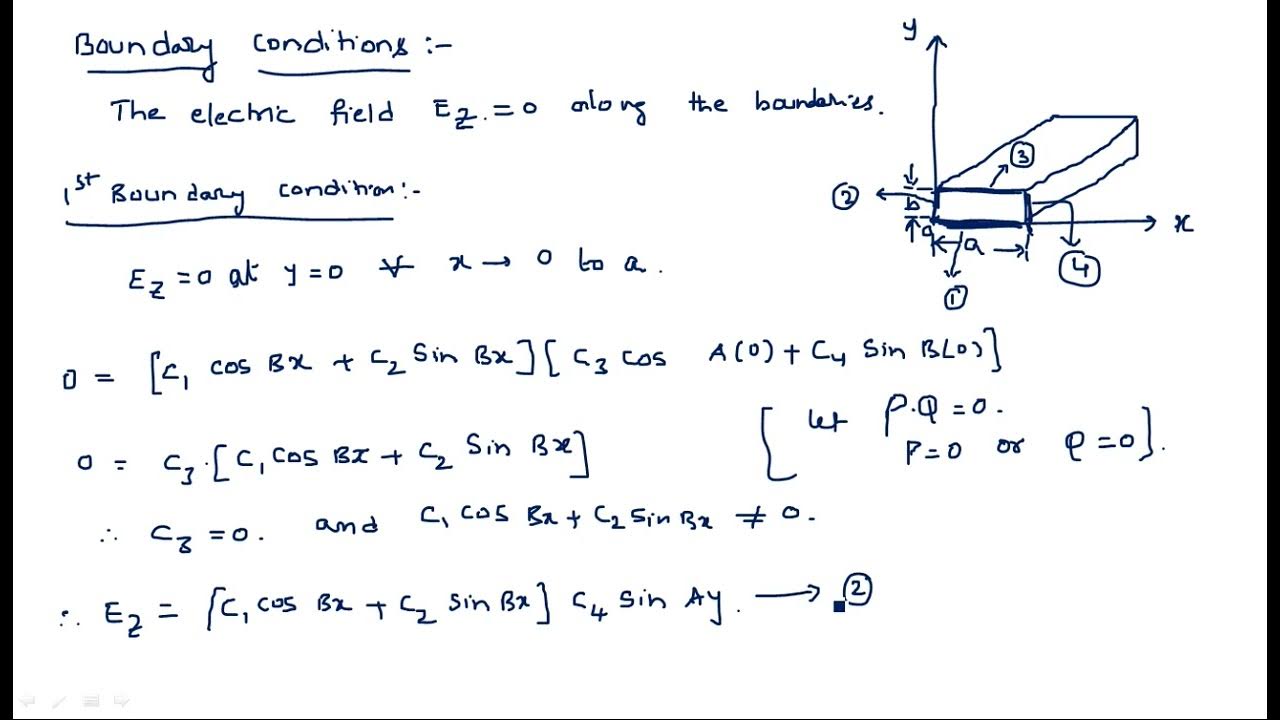 Boundary conditions :-
The electric field Ez = 0 along the boundaries.
1st Boundary condition:-
Ez = 0 at y = 0 ∀ x → 0 to a.
0 = [C1 cos Bx + C2 Sin Bx] [C3 cos A(0) + C4 Sin B(0)]
0 = C3.[C1 cos Bx + C2 Sin Bx]
[let P.Q = 0.
P=0 or Q=0].
∴ C3 = 0. and C1 cos Bx + C2 sin Bx ≠ 0.
∴ Ez = [C1 cos Bx + C2 sin Bx] C4 sin Ay. → ②
y
③
②
b
x
0
a
④
①